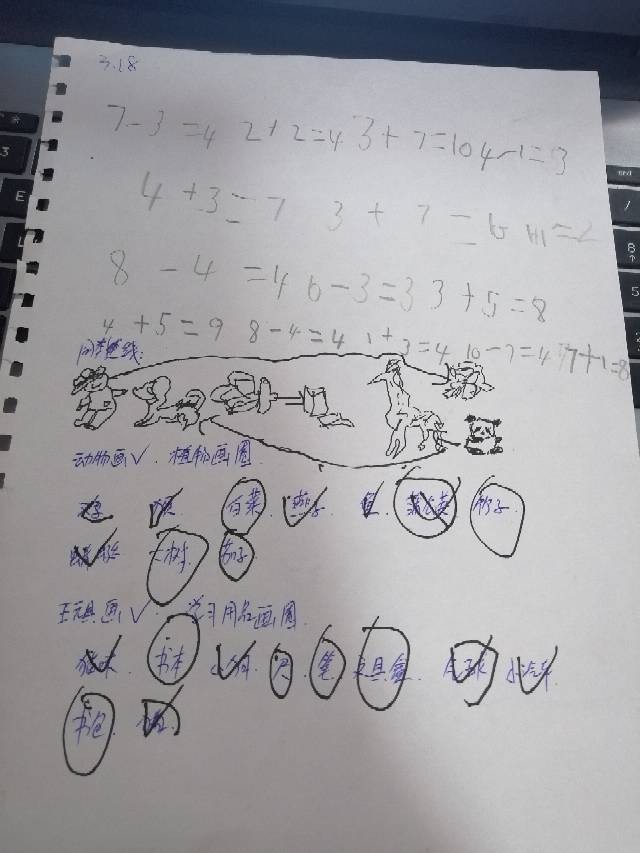 3.18
7-3=4 2+2=4 3+7=10 4-1=3
4+3=7 3+7=
8-4=4 6-3=3 3+5=8
4+5=9 8-4=4 1+3=4 10-7=4 7+1=8
动物画√. 植物画圈.
白菜. 燕子 鱼 竹子.
树. 茄子
玩具画√. 学习用名画圈.
书本 小狗. 尺. 笔 文具盒. 小汽车.
书包.